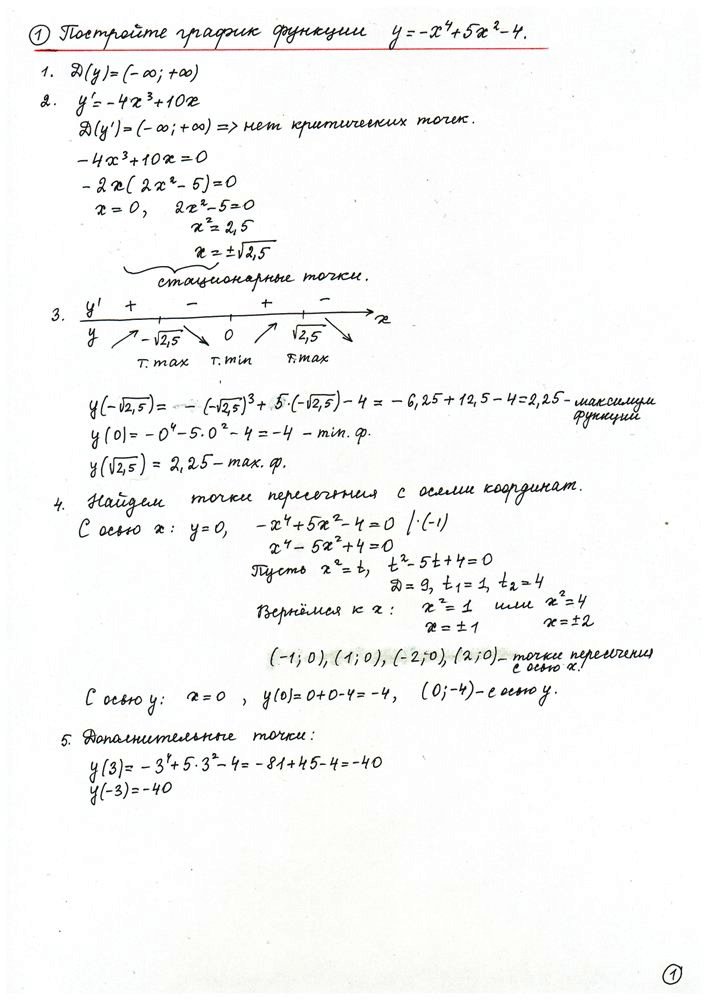 ① Постройте график функции y=-x⁴+5x²-4.
1. D(y)=(-∞; +∞)
2. y'=-4x³+10x
D(y')=(-∞; +∞) => нет критических точек.
-4x³+10x=0
-2x(2x²-5)=0
x=0, 2x²-5=0
x²=2,5
x=±√2,5
стационарные точки.
3. y' + - + -
y -√2,5 0 √2,5 x
т.max т.min т.max
y(-√2,5)= -(-√2,5)³+5·(-√2,5)-4=-6,25+12,5-4=2,25-максимум
функции
y(0)=-0⁴-5·0²-4=-4 -min.ф.
y(√2,5)=2,25-max.ф.
4. Найдем точки пересечения с осями координат.
С осью x: y=0, -x⁴+5x²-4=0 /·(-1)
x⁴-5x²+4=0
Пусть x²=t, t²-5t+4=0
D=9, t₁=1, t₂=4
Вернёмся к x: x²=1 или x²=4
x=±1 x=±2
(-1;0), (1;0), (-2;0), (2;0)-точки пересечения
с осью x.
С осью y: x=0, y(0)=0+0-4=-4, (0;-4)-с осью y.
5. Дополнительные точки:
y(3)=-3⁴+5·3²-4=-81+45-4=-40
y(-3)=-40
①